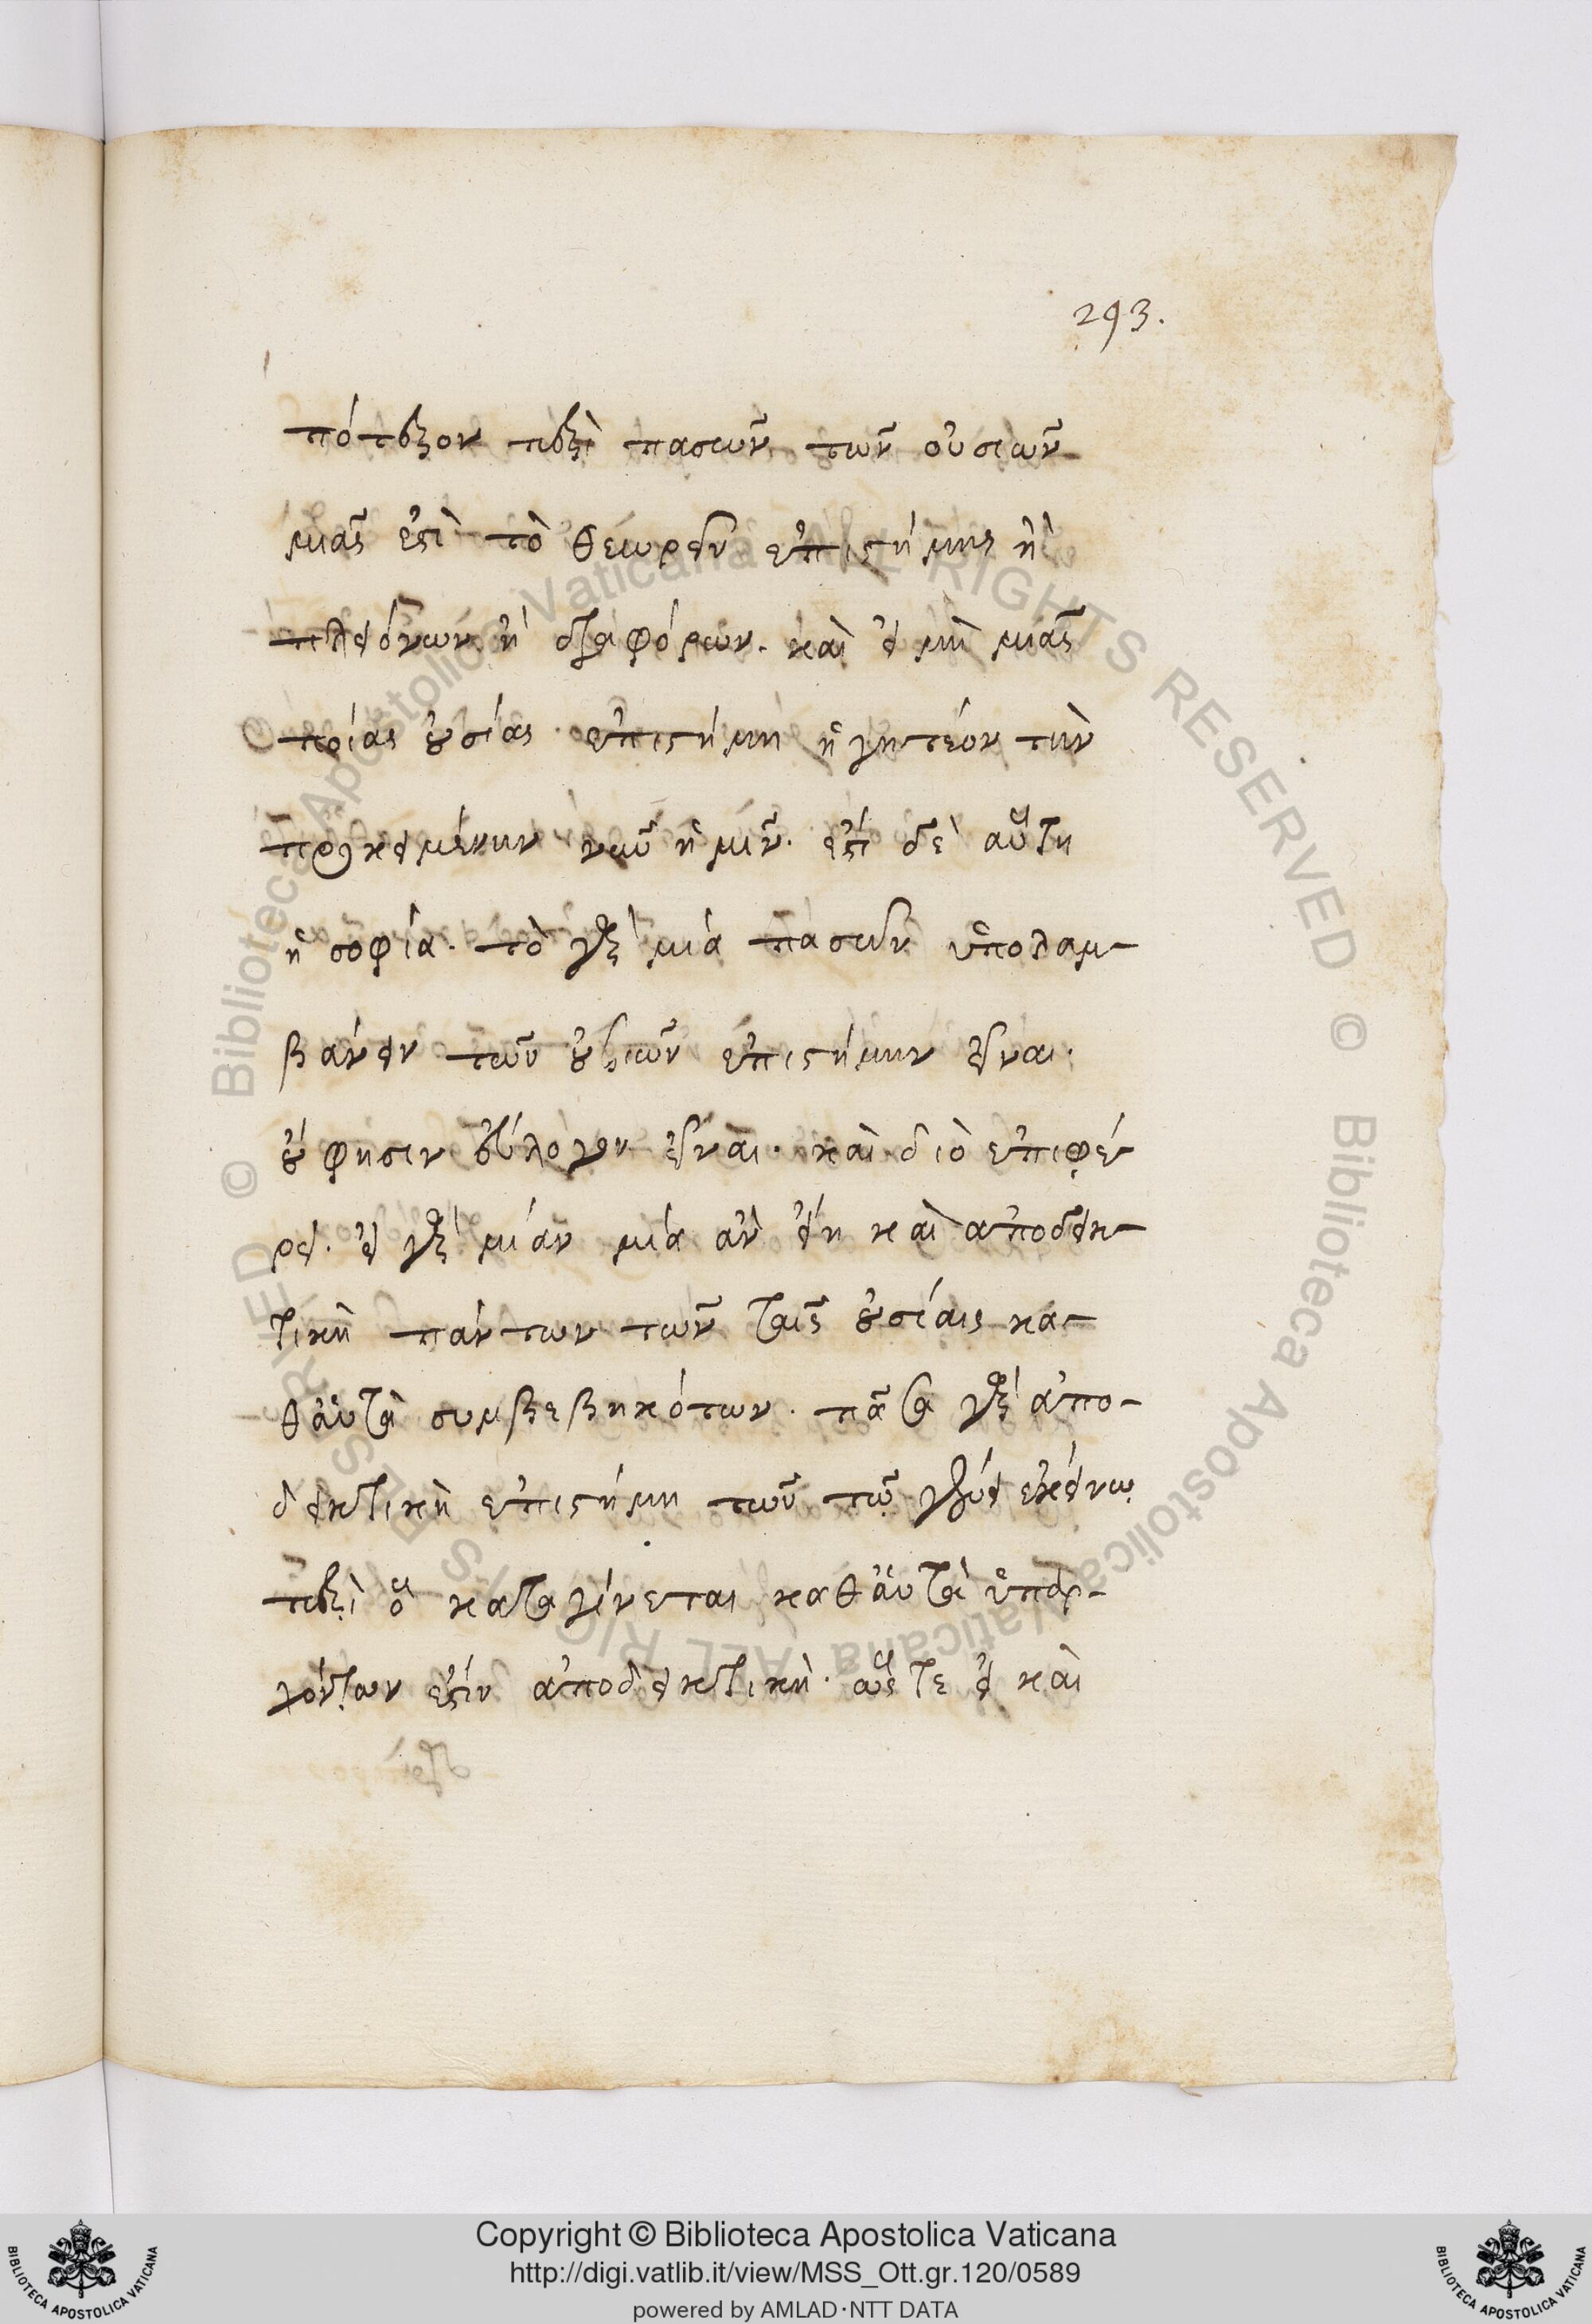 293.
πότερον περὶ πασῶν τῶν οὐσιῶν
μιᾶς ἐστὶ τὸ θεωρεῖν ἐπιστήμης ἢ
πλειόνων ἢ διαφόρων. καὶ εἰ μὴ μιᾶς
ποίας οὐσίας ἐπιστήμη ἡγητέον τὴν
προκειμένην νῦν ἡμῖν. ἐστὶ δὲ αὕτη
ἡ σοφία. τὸ γὰρ μία πασῶν ὑπολαμ-
βάνειν τῶν οὐσιῶν ἐπιστήμην εἶναι.
οὔ φησιν εὔλογον εἶναι. καὶ διὸ ἐπιφέ
ρει. εἰ γὰρ μίαν μία ἂν εἴη καὶ ἀποδεικ-
τικὴ πάντων τῶν ταῖς οὐσίαις κα-
θ' αὑτὰ συμβεβηκότων. πᾶσα γὰρ ἀπο-
δεικτικὴ ἐπιστήμη τῶν τῷ γένει ἐκείνῳ
περὶ ὃ καταγίνεται καθ' αὑτὰ ὑπαρ-
χόντων ἐστὶν ἀποδεικτική. ὥστε εἰ καὶ
© Biblioteca Apostolica Vaticana ALL RIGHTS RESERVED © Biblioteca Apostolica Vaticana ALL RIGHTS RESERVED
Copyright © Biblioteca Apostolica Vaticana
http://digi.vatlib.it/view/MSS_Ott.gr.120/0589
powered by AMLAD·NTT DATA
BIBLIOTECA APOSTOLICA VATICANA
BIBLIOTECA APOSTOLICA VATICANA